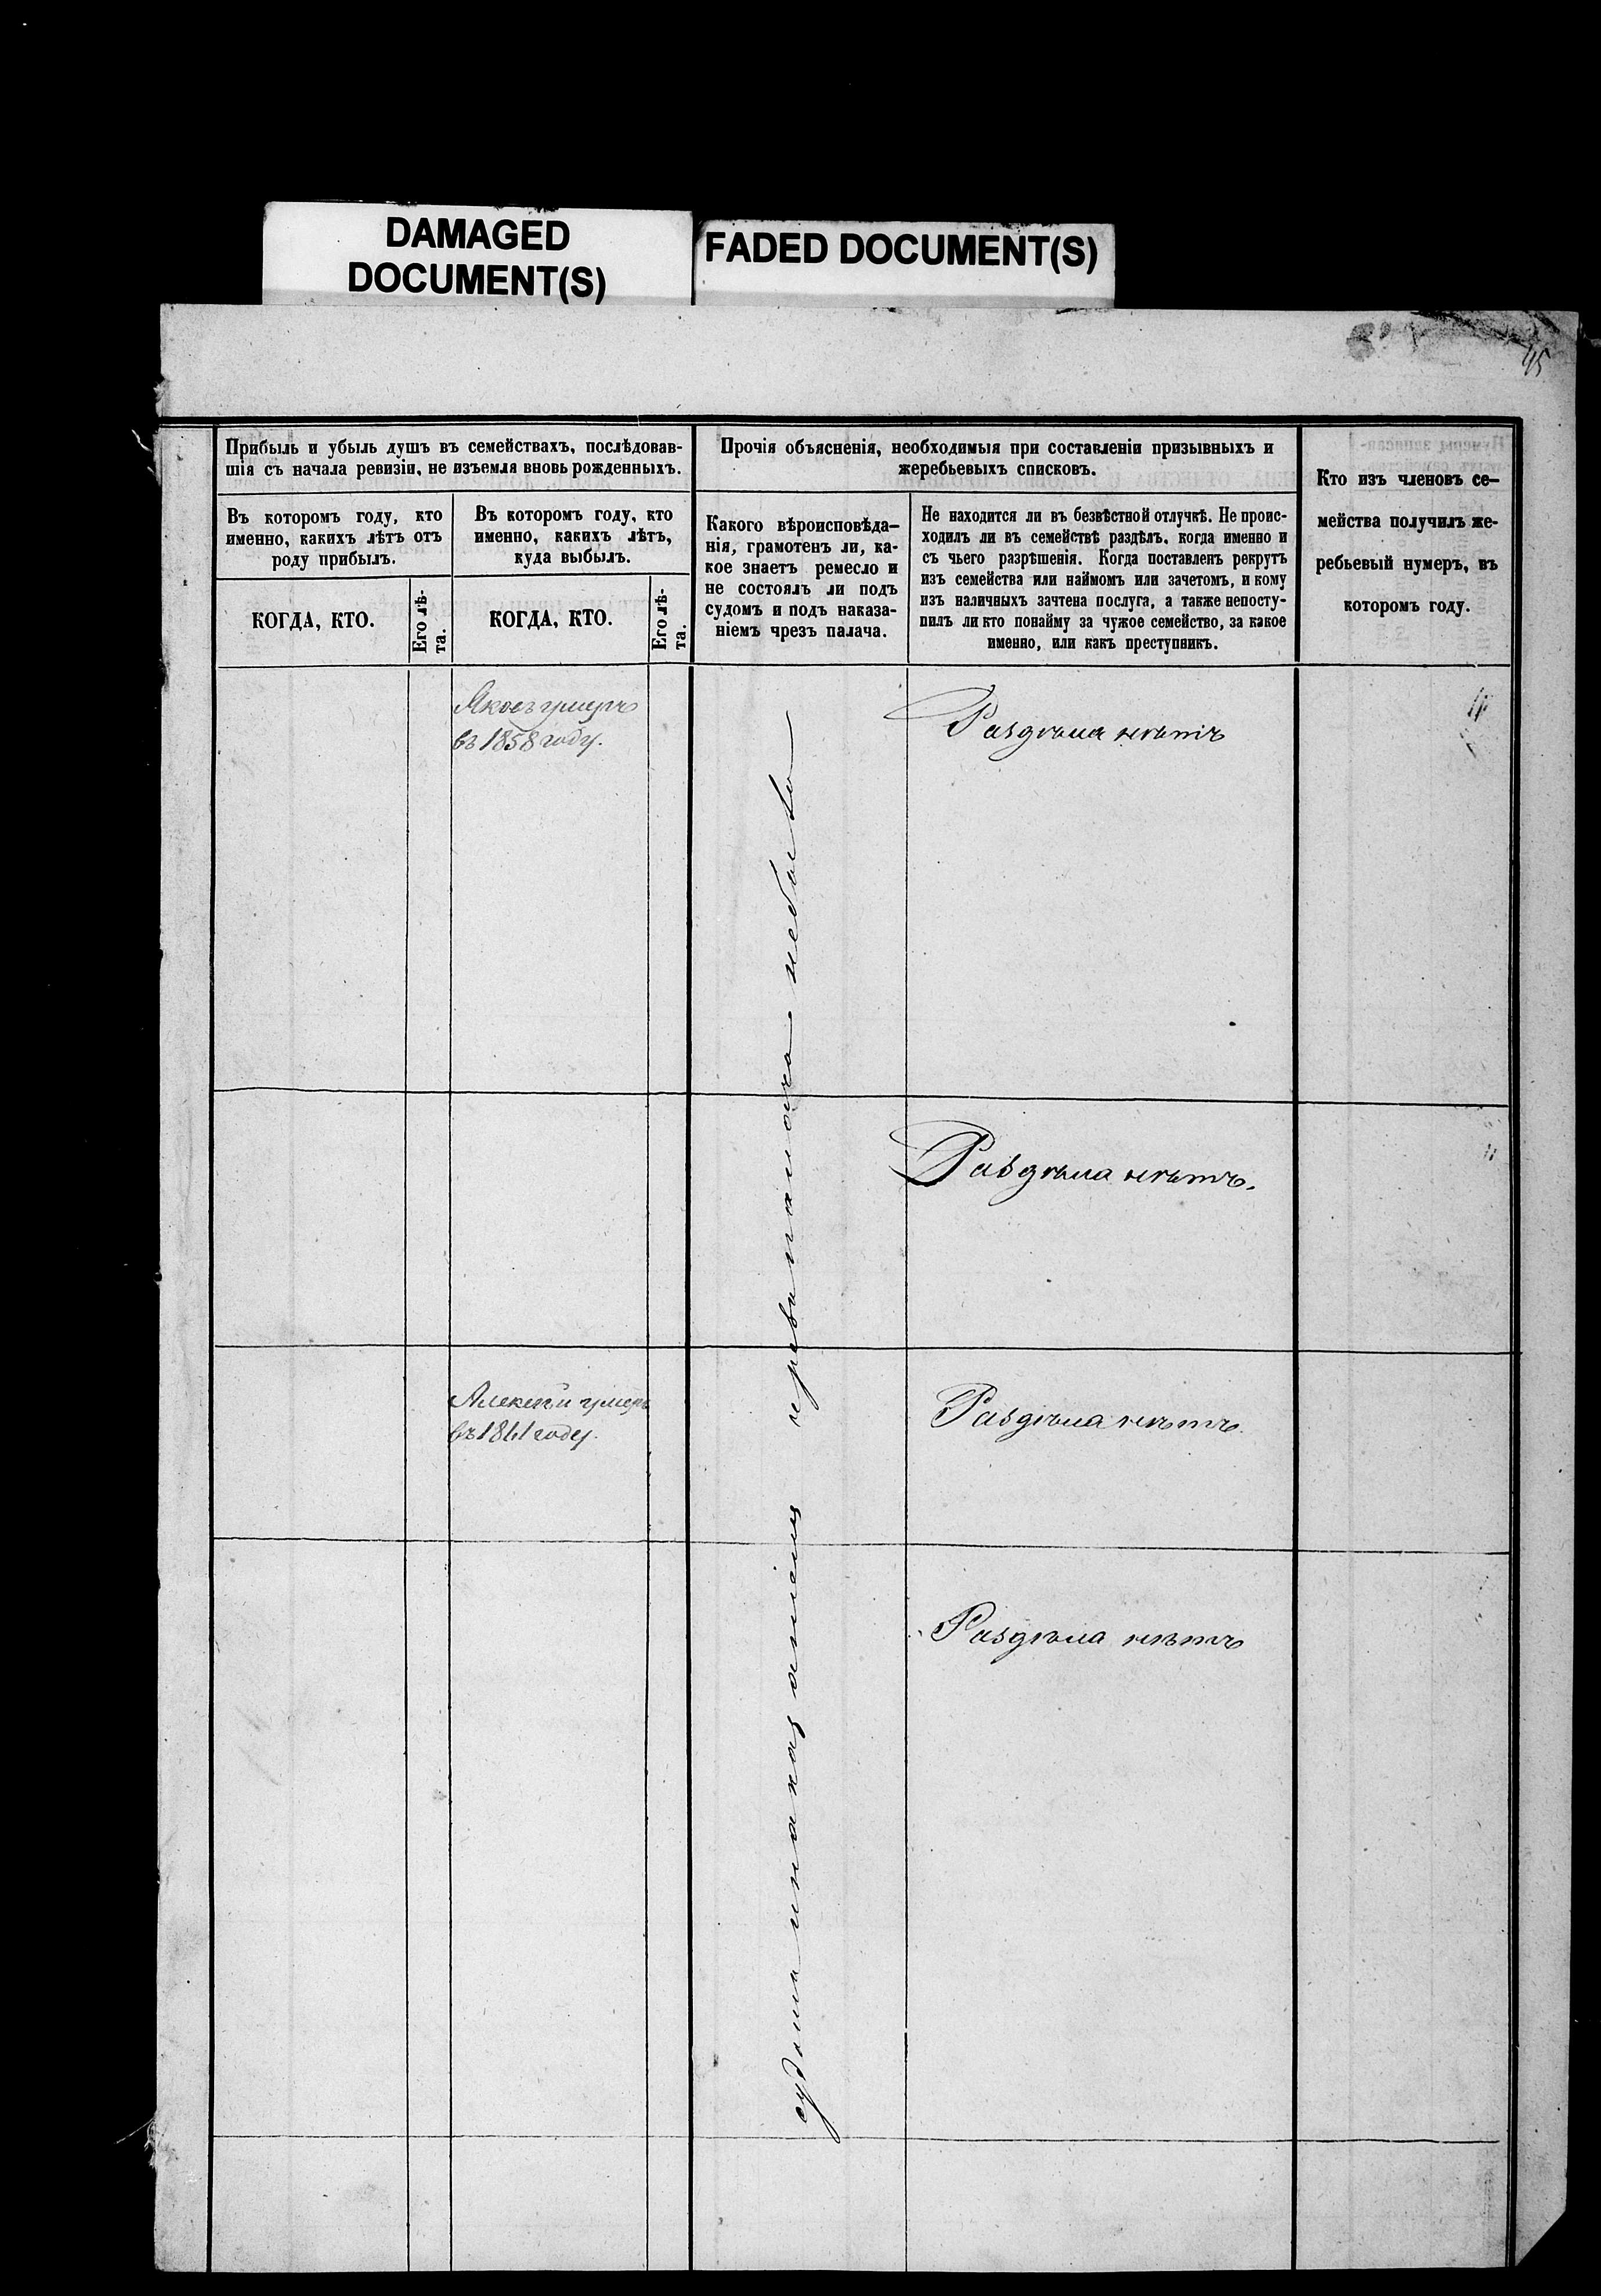 DAMAGED
DOCUMENT(S)
FADED DOCUMENT(S)
45
Прибыль и убыль душъ въ семействахъ, послѣдовав-
шія съ начала ревизіи, не изъемля вновь рожденныхъ.
Прочія объясненія, необходимыя при составленіи призывныхъ и
жеребьевыхъ списковъ.
Кто изъ членовъ се-
мейства получилъ же-
ребьевый нумеръ, въ
которомъ году.
Въ которомъ году, кто
именно, какихъ лѣтъ отъ
роду прибылъ.
Въ которомъ году, кто
именно, какихъ лѣтъ,
куда выбылъ.
Какого вѣроисповѣда-
нія, грамотенъ ли, ка-
кое знаетъ ремесло и
не состоялъ ли подъ
судомъ и подъ наказа-
ніемъ чрезъ палача.
Не находится ли въ безвѣстной отлучкѣ. Не проис-
ходилъ ли въ семействѣ раздѣлъ, когда именно и
съ чьего разрѣшенія. Когда поставленъ рекрутъ
изъ семейства или наймомъ или зачетомъ, и кому
изъ наличныхъ зачтена послуга, а также непосту-
пилъ ли кто понайму за чужое семейство, за какое
именно, или какъ преступникъ.
КОГДА, КТО.
Его лѣ-
та.
КОГДА, КТО.
Его лѣ-
та.
Яковъ умеръ
въ 1858 году.
Раздѣла нѣтъ
Раздѣла нѣтъ.
Алексѣй умеръ
въ 1861 году.
Раздѣла нѣтъ.
Раздѣла нѣтъ
чрезъ палача небыло